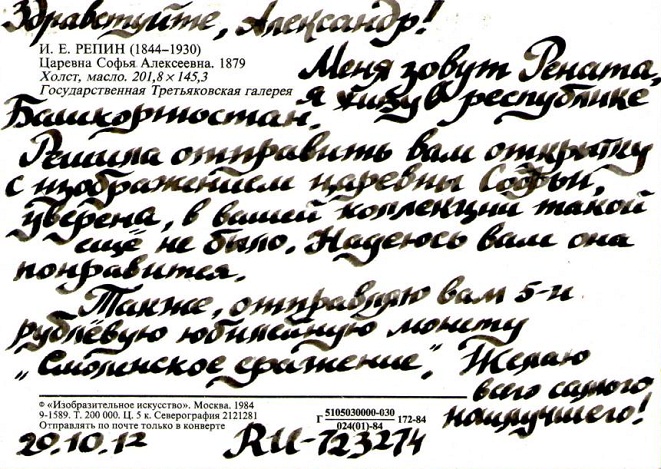 Здравствуйте, Александр!
И. Е. РЕПИН (1844–1930)
Царевна Софья Алексеевна. 1879
Холст, масло. 201,8 × 145,3
Государственная Третьяковская галерея
Меня зовут Рената,
я живу в республике
Башкортостан.
Решила отправить вам открытку
с изображением царевны Софьи,
уверена, в вашей коллекции такой
ещё не было. Надеюсь вам она
понравится.
Также, отправляю вам 5-и
рублёвую юбилейную монету
„Смоленское сражение". Желаю
всего самого
наилучшего!
Ф «Изобразительное искусство». Москва. 1984
9-1589. Т. 200 000. Ц. 5 к. Северография 2121281
Отправлять по почте только в конверте
Г 5105030000-030 172-84
024(01)-84
20.10.12 RU-723274